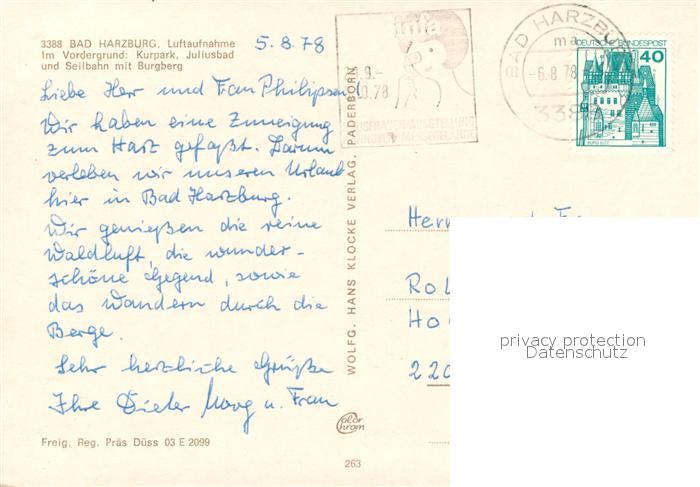 3388 BAD HARZBURG, Luftaufnahme
Im Vordergrund: Kurpark, Juliusbad
und Seilbahn mit Burgberg
5.8.78
Liebe Herr und Frau Philipsen!
Wir haben eine Zuneigung
zum Harz gefaßt. Darum
verleben wir unseren Urlaub
hier in Bad Harzburg.
Wir genießen die reine
Waldluft, die wunder-
schöne Gegend, sowie
das Wandern durch die
Berge.
Sehr herzliche Grüße
Ihre Dieter u. Frau
Freig. Reg. Präs Düss 03 E 2099
WOLFG. HANS KLOCKE VERLAG, PADERBORN
263
BAD HARZBU
-6.8.78
338
DEUTSCHE BUNDESPOST
40
BURG ELTZ
Her
Rol
Ho
220
privacy protection
Datenschutz